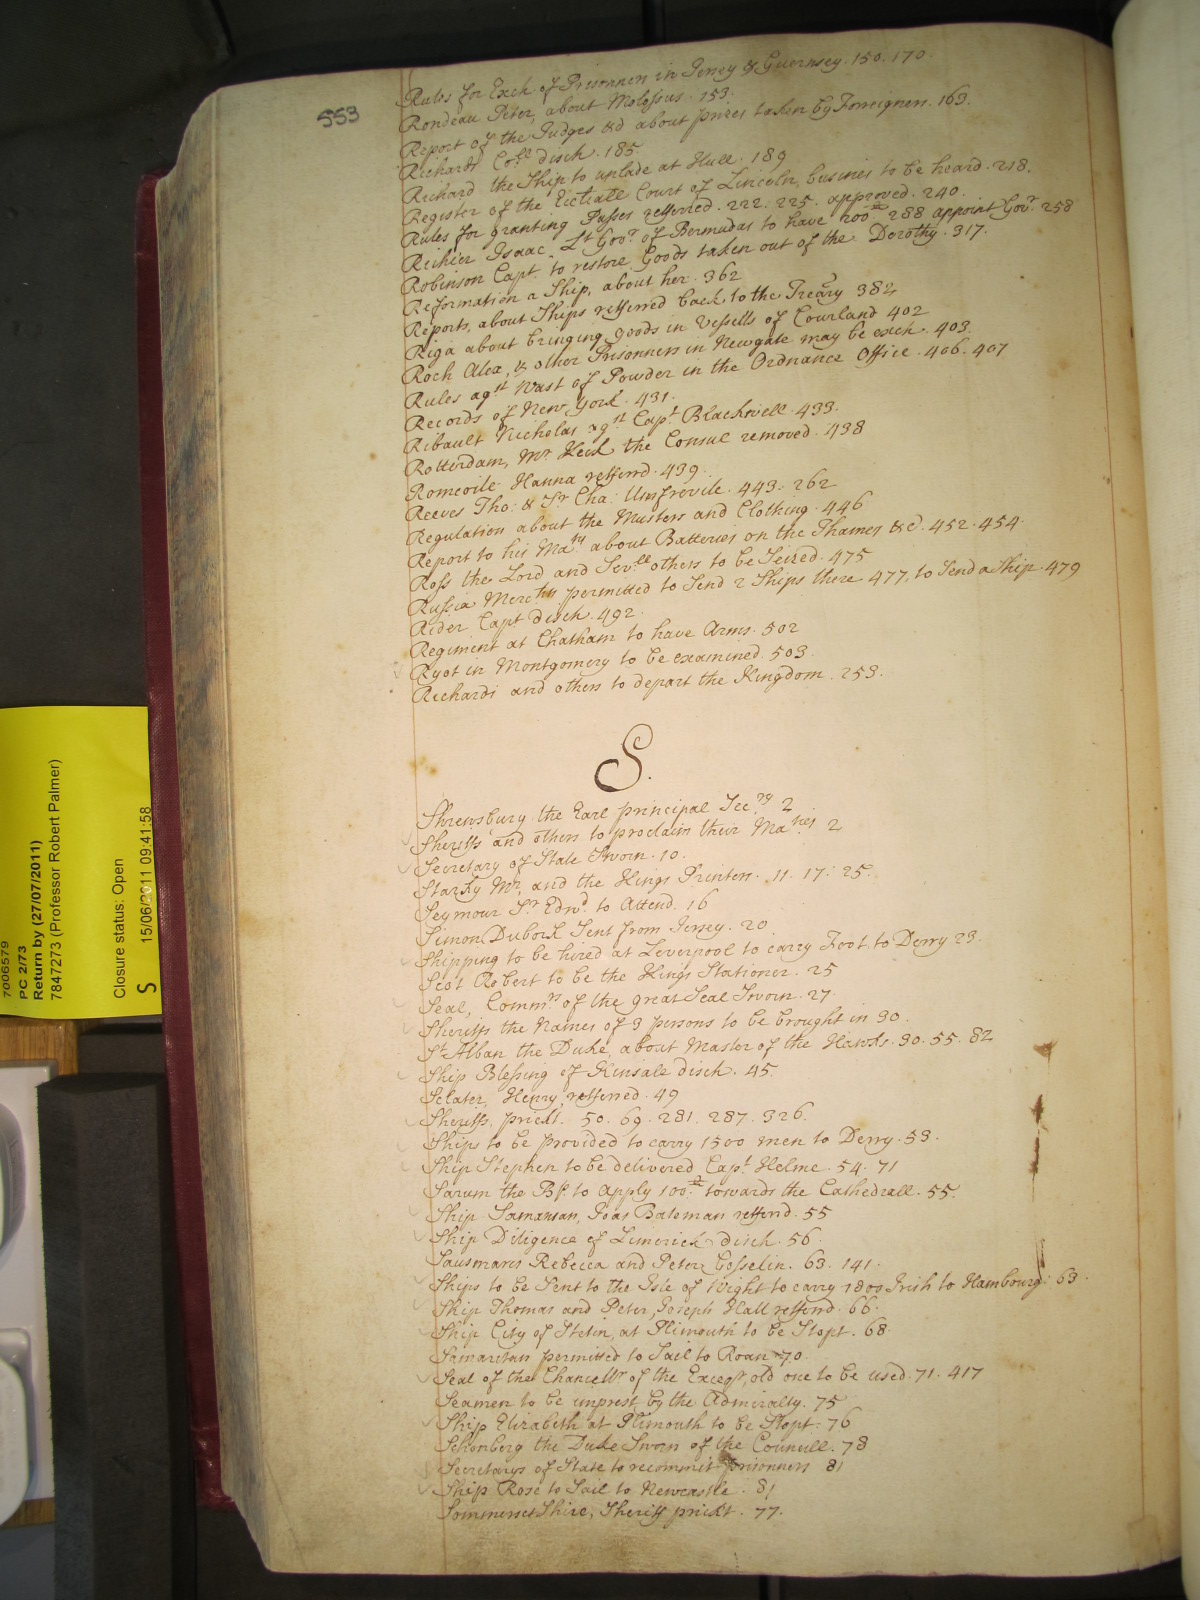 553
Rules for Exch. of Prisonners in Jersey & Guernsey. 150. 170.
Rondeau Peter, about Molossus. 153.
Report of the Judges &c about prizes taken by Forreigners. 163.
Richards Coll. disch. 185
Richard the Ship to unlade at Hull. 189
Register of the Court of Lincoln, busines to be heard. 218.
Rules for granting Passes refferred. 222. 225. approved. 240.
Richier Isaac, Lt Govr. of Bermudas to have 200 288 appoint Govr. 258
Robinson Capt. to restore Goods taken out of the Dorothy. 317.
Reformation a Ship, about her. 362
Reports, about Ships refferred back to the Treāry 382
Riga about bringing goods in Vessells of Courland 402
Roch Alex, & other Prisonners in Newgate may be exch. 403.
Rules agst Wast of Powder in the Ordnance Office. 406. 407
Records of New York. 431.
Ribault Nicholas agst Capt Blackwell. 433.
Rotterdam, Mr Keck the Consul removed. 438
Romeoile Hanna refferrd. 439.
Reeves Tho: & Sr Cha: Umfrevile. 443. 262
Regulation about the Musters and Clothing. 446
Report to his Maty about Batteries on the Thames &c. 452. 454.
Ross the Lord and Sevll others to be Seized. 475
Russia Merchts permitted to Send 2 Ships there 477, to Send a Ship. 479
Rider Capt disch. 492.
Regiment at Chatham to have Arms. 502
Ryot in Montgomery to be examined. 503.
Richards and others to depart the Kingdom. 253.
S.
Shrewsbury the Earl principal Secry 2
Sheriffs and others to proclaim their Maties 2
Secretary of State Sworn. 10.
Starky Mr, and the Kings Printers. 11. 17: 25.
Seymour Sr Edwd to Attend. 16
Simon Dubork Sent from Jersey. 20.
Shipping to be hired at Leverpool to carry Foot to Derry 23.
Scot Robert to be the Kings Stationer. 25
Seal, Commrs of the great Seal Sworn. 27.
Sheriffs the Names of 3 persons to be brought in 30.
St Alban the Duke, about Master of the Hawks. 30. 55. 82
Ship Blessing of Kinsale disch. 45.
Sclater, Henry, refferred. 49
Sheriffs, prickt. 50. 69. 281. 287. 326.
Ships to be provided to carry 1500 men to Derry. 53.
Ship Stephen to be delivered Capt. Helme. 54. 71
Sarum the Bp. to apply 100 towards the Cathedrall. 55.
Ship Samaritan, Joas Bateman refferrd. 55
Ship Diligence of Limerick disch. 56.
Sausmares Rebecca and Peter Gosselin. 63. 141.
Ships to be Sent to the Isle of Wight to carry 1800 Irish to Hambourg. 63.
Ship Thomas and Peter, Joseph Hall refferrd. 66.
Ship City of Stetin, at Plimouth to be Stopt. 68.
Samaritan permitted to Sail to Roan 70
Seal of the Chancellr of the Excheqr, old one to be used. 71. 417
Seamen to be imprest by the Admiralty. 75
Ship Elizabeth at Plimouth to be Stopt. 76
Schonberg the Duke Sworn of the Councill. 78
Secretarys of State to recommit prisonners 81
Ship Rose to Sail to Newcastle. 81
Sommerset Shire, Sheriff prickt. 77.
7006579
PC 2/73
Return by (27/07/2011)
7847273 (Professor Robert Palmer)
Closure status: Open
S 15/06/2011 09:41:58